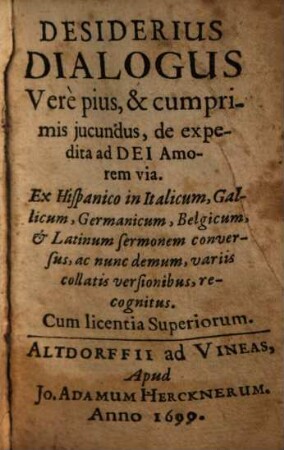 DESIDERIUS
DIALOGUS
Verè pius, & cum pri-
mis jucundus, de expe-
dita ad DEI Amo-
rem via.
Ex Hiſpanico in Italicum, Gal-
licum, Germanicum, Belgicum,
& Latinum ſermonem conver-
ſus, ac nunc demum, variis
collatis verſionibus, re-
cognitus.
Cum licentia Superiorum.
ALTDORFFII ad VINEAS,
Apud
JO. ADAMUM HERCKNERUM.
Anno 1699.